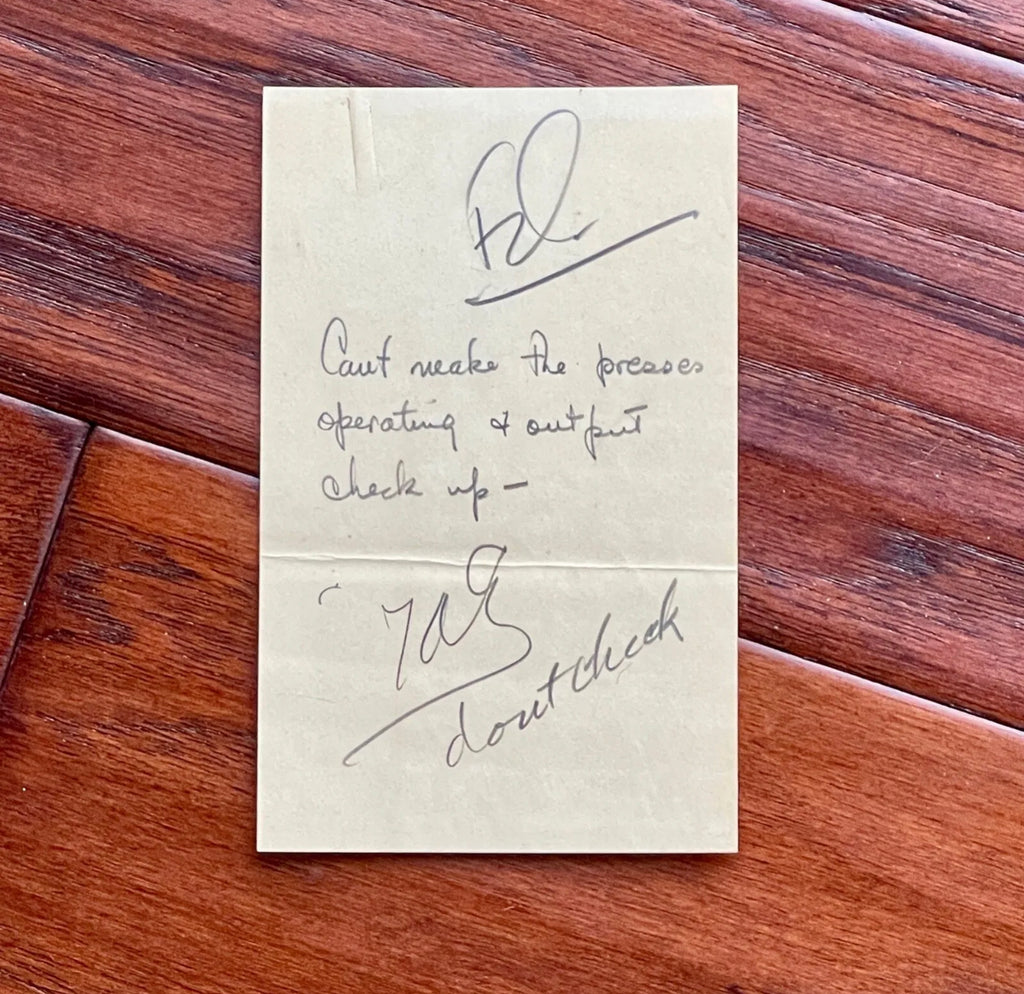 Cant make the presses
operating & output
check up –
TAE
dont check